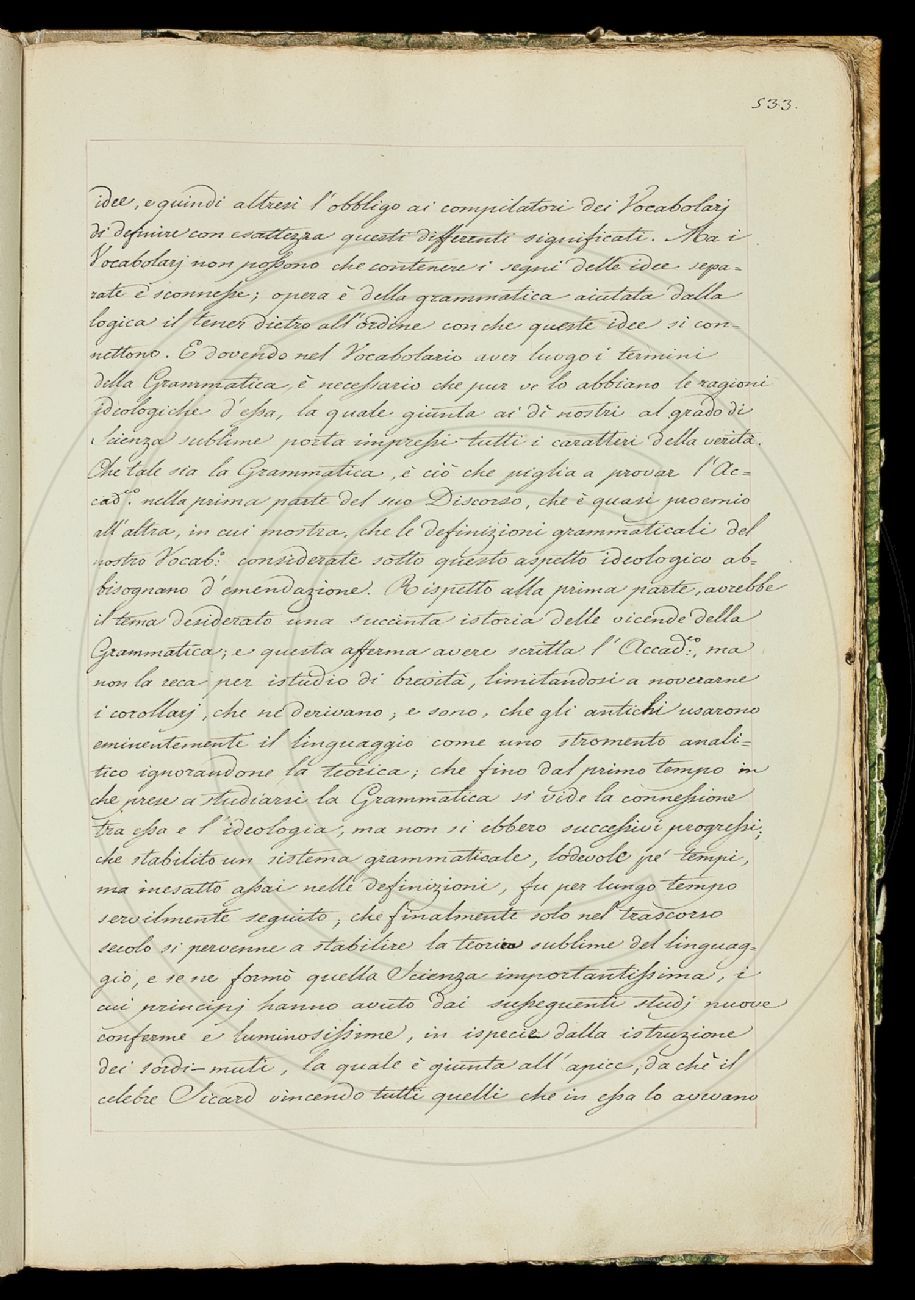 533.
idee, e quindi altresì l'obbligo ai compilatori dei Vocabolarj
di definire con esattezza questi differenti significati. Ma i
Vocabolarj non possono che contenere i segni delle idee sepa=
rate e sconnesse; opera è della grammatica aiutata dalla
logica il tener dietro all'ordine con che queste idee si con=
nettono. E dovendo nel Vocabolario aver luogo i termini
della Grammatica, è necessario che pur ve lo abbiano le ragioni
ideologiche d'essa, la quale giunta ai dì nostri al grado di
Scienza sublime porta impressi tutti i caratteri della verità.
Che tale sia la Grammatica, è ciò che piglia a provar l'Ac=
cad.co nella prima parte del suo Discorso, che è quasi proemio
all'altra, in cui mostra, che le definizioni grammaticali del
nostro Vocab.o considerate sotto questo aspetto ideologico ab=
bisognano d'emendazione. Rispetto alla prima parte, avrebbe
il tema desiderato una succinta istoria delle vicende della
Grammatica; e questa afferma avere scritta l'Accad.co, ma
non la reca per istudio di brevità, limitandosi a noverarne
i corollarj, che ne derivano; e sono, che gli antichi usarono
eminentemente il linguaggio come uno stromento anali=
tico ignorandone la teorica; che fino dal primo tempo in
che prese a studiarsi la Grammatica si vide la connessione
tra essa e l'ideologia, ma non si ebbero successivi progressi;
che stabilito un sistema grammaticale, lodevole pe' tempi,
ma inesatto assai nelle definizioni, fu per lungo tempo
servilmente seguito; che finalmente solo nel trascorso
secolo si pervenne a stabilire la teorica sublime del linguag=
gio, e se ne formò quella Scienza importantissima, i
cui principj hanno avuto dai susseguenti studj nuove
conferme e luminosissime, in ispecie dalla istruzione
dei sordi-muti, la quale è giunta all'apice, da chè il
celebre Sicard vincendo tutti quelli che in essa lo avevano